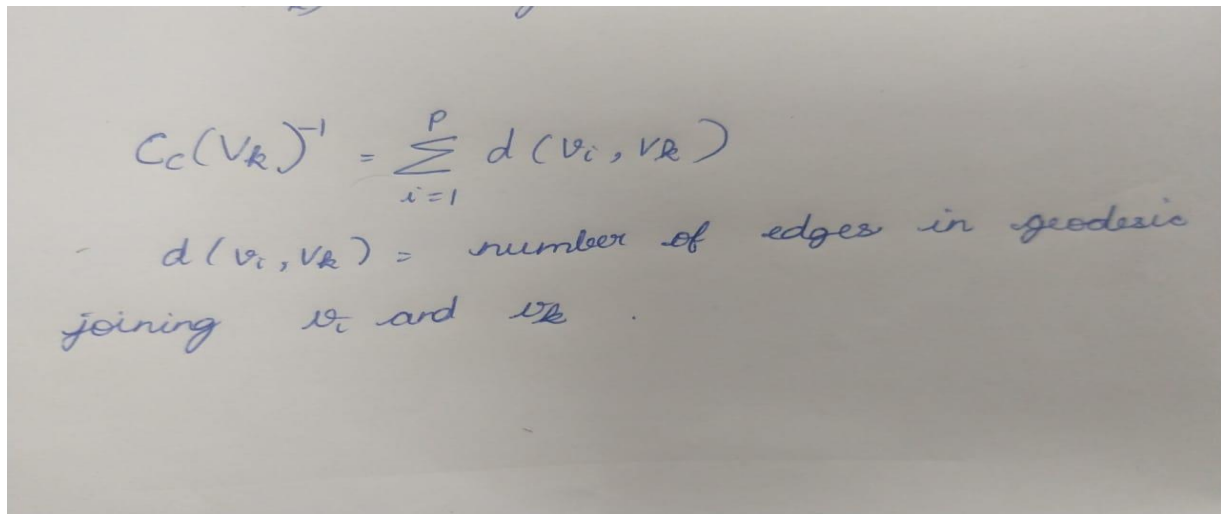 C_c(V_k)^{-1} = \sum_{i=1}^{P} d(v_i, v_k)
d(v_i, v_k) = number of edges in geodesic
joining v_i and v_k .